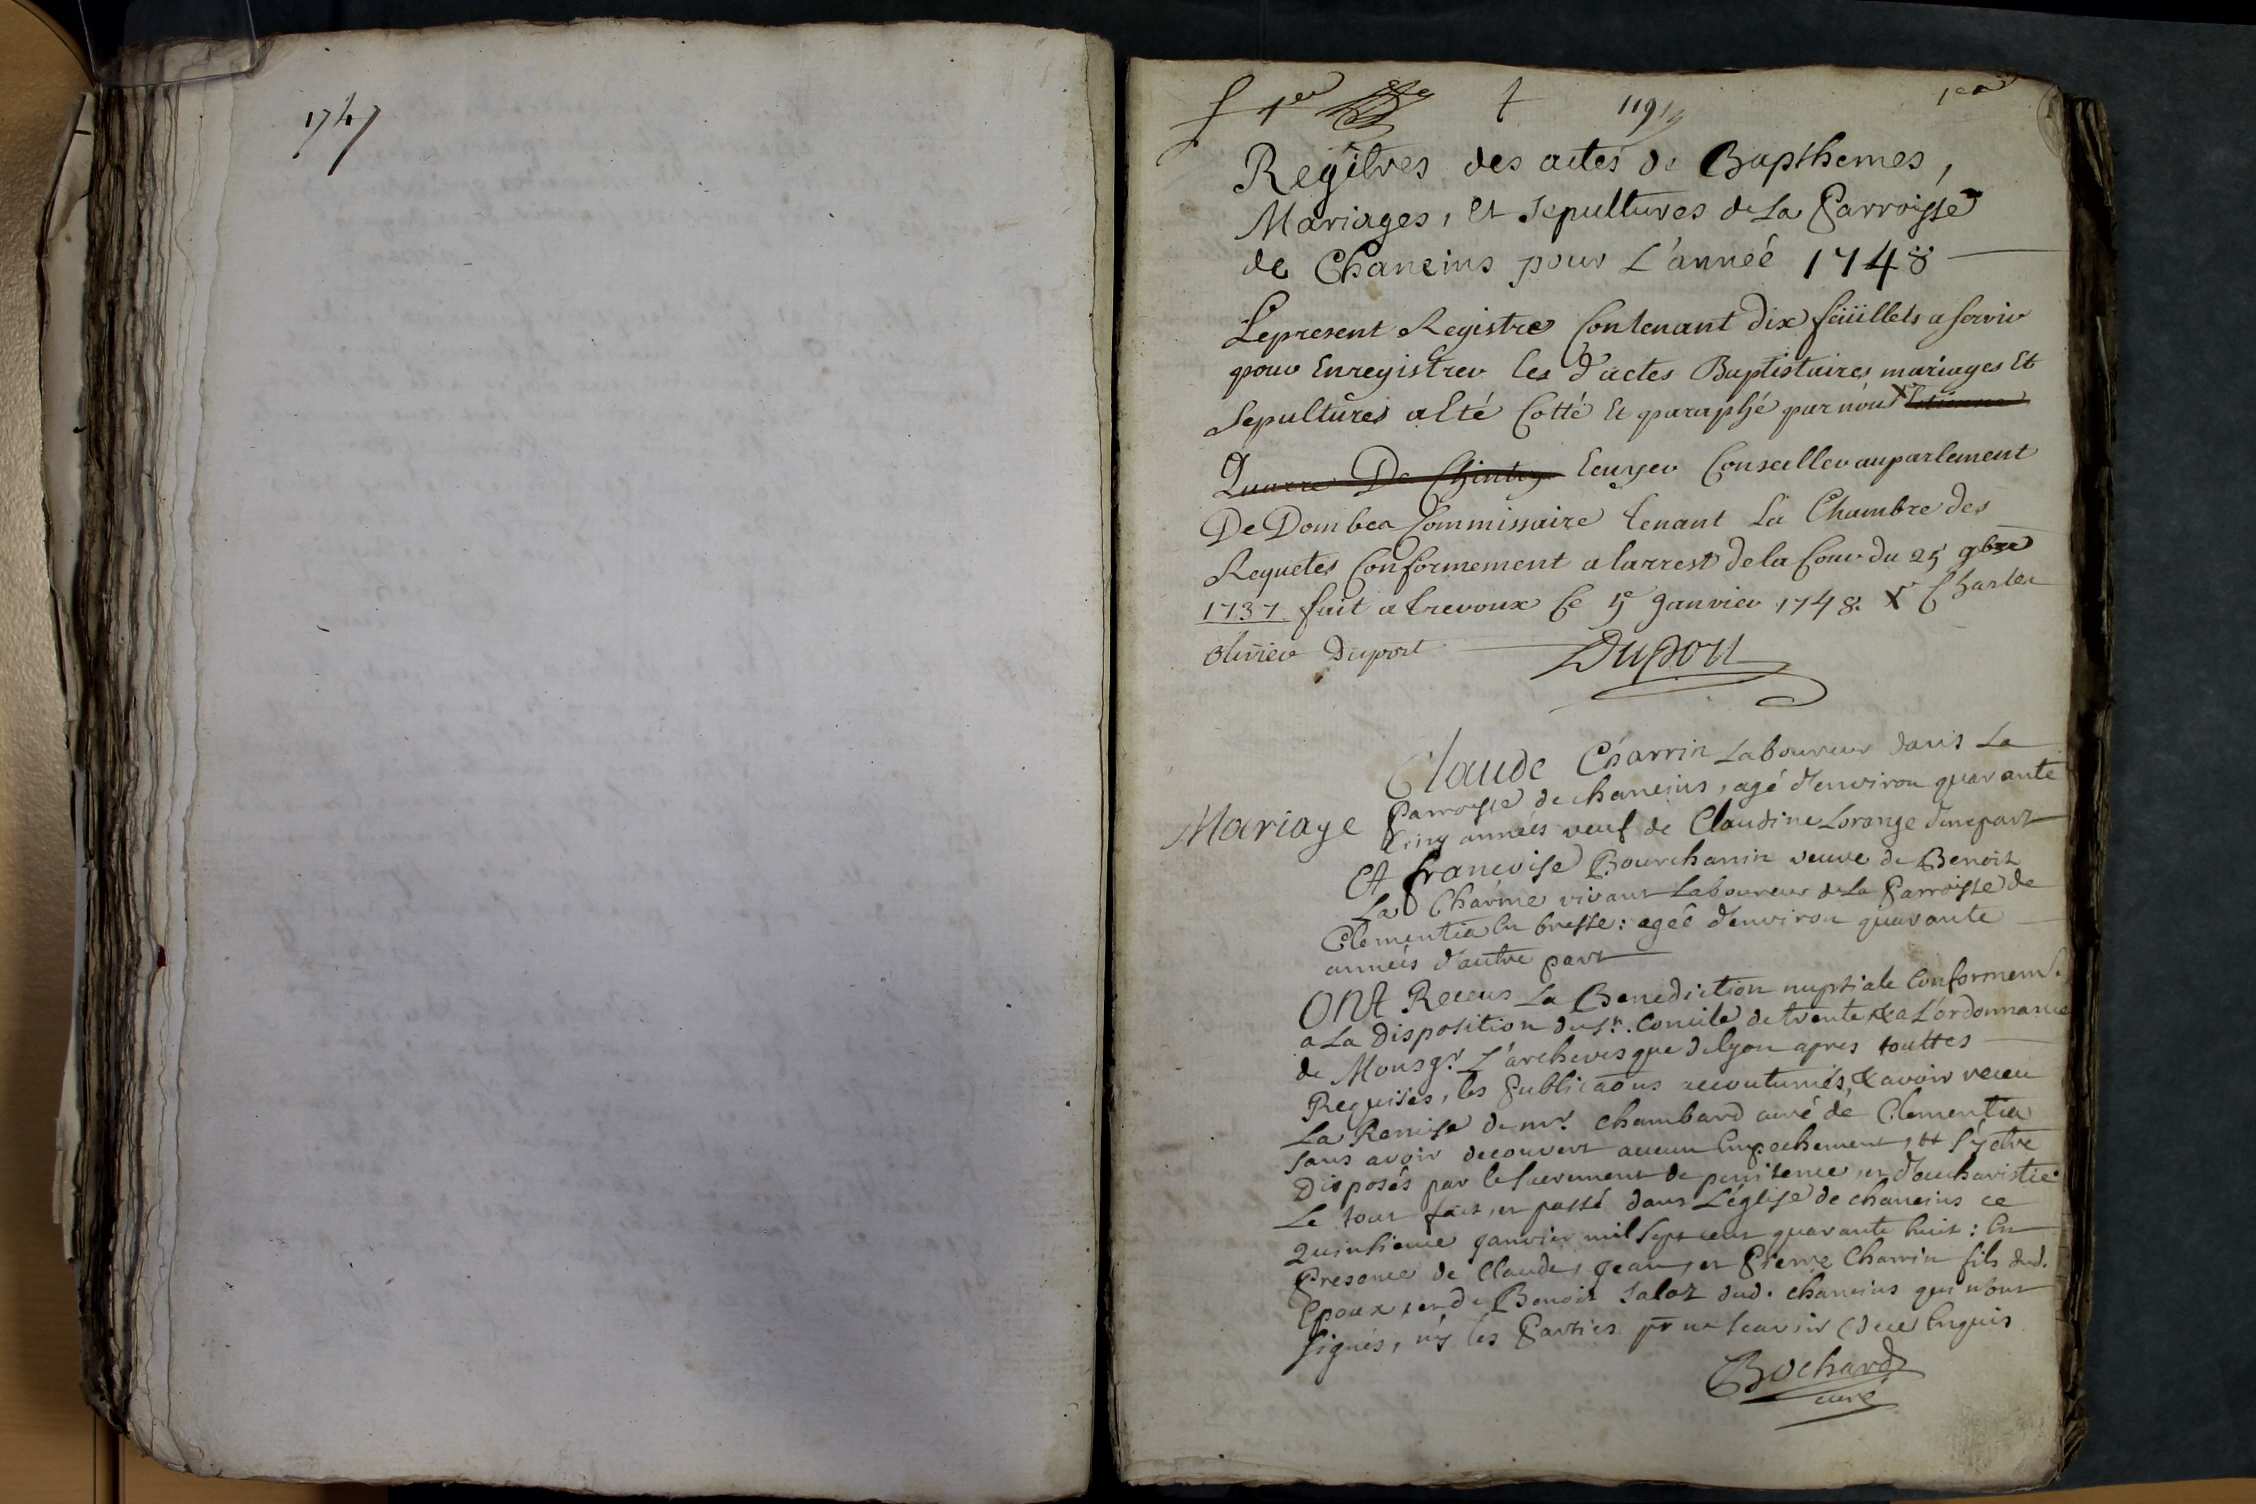 1747
f 1er
119
1er
Regitres des actes de Bapthemes,
Mariages, Et sepultures de La Parroisse
de Chaneins pour L'année 1748
Le present Registre Contenant dix feüillets a servir
pour Enregistrer les d'actes Baptistaires mariages Et
Sepultures a Eté Cotté Et paraphé par nous X Etienne
Quarré De Chintry Ecuyer Conseiller au parlement
De Dombes Commissaire tenant La Chambre des
Requetes Conformement a larrest de la Cour du 25 9bre
1737 fait a trevoux Ce 5e Janvier 1748. X Charles
Olivier Duport Duport
Claude Charrin Laboureur dans La
Mariage Parroisse de chaneins, agé d'environ quarante
Cinq années veuf de Claudine Lorange d'une part
Et francoise Bourchanin veuve de Benoit
La Charme vivant Laboureur de La Parroisse de
Clementia En bresse: ageé d'environ quarante
années d'autre part
Ont Receus La Benediction nuptiale Conformemt.
a La disposition du st. Concile de trente & a L'ordonnance
de Monsgr. L'archevesque de Lyon apres touttes
Requises, les Publicaons accoutumés, & avoir receu
La Remise de mr. Chambard curé de Clementia
sans avoir decouvert aucun Empechement, et s'y etre
disposés par le sacrement de penitence, et d'eucharistie
Le tout fait, et passé dans L'église de chaneins ce
quinsieme janvier mil sept cent quarante huit: En
Presence de Claude, Jean, et Pierre Charrin fils dud.
Epoux, et de Benoit Salot dud. chaneins qui n'ont
signés, ny les Parties pr ne scavoir de ce Enquis
Bochard
curé